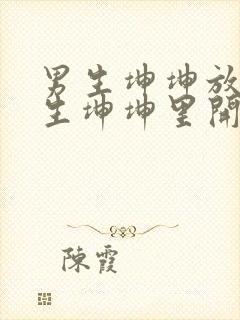 男生坤坤放
生坤坤里開
陳霞